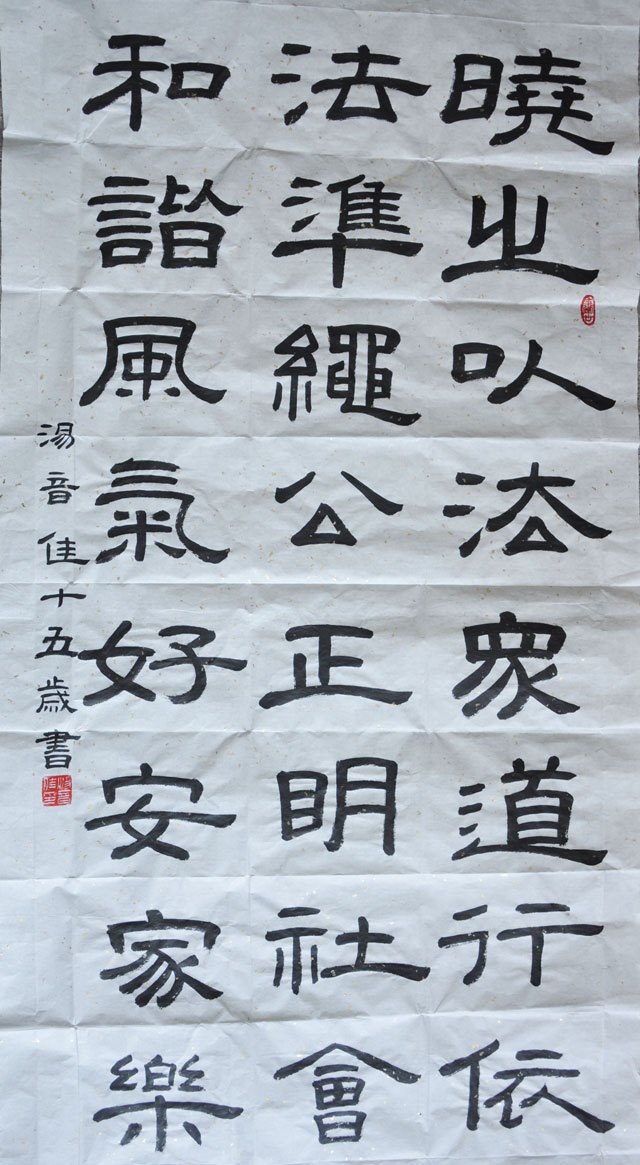 曉之以法眾道行依
法準繩公正明社會
和諧風氣好安家樂
湯音佳十五歲書